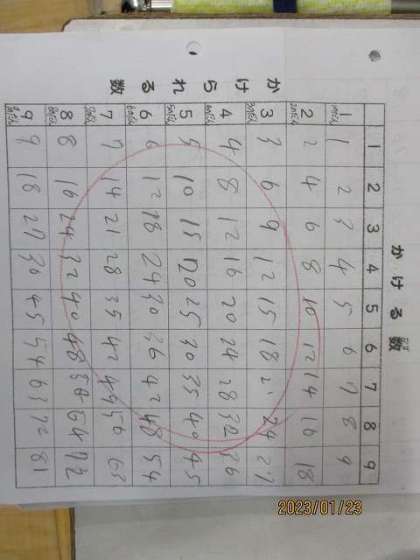 かける数
かけられる数
1 2 3 4 5 6 7 8 9
1 1 2 3 4 5 6 7 8 9
2 2 4 6 8 10 12 14 16 18
3 3 6 9 12 15 18 21 24 27
4 4 8 12 16 20 24 28 32 36
5 5 10 15 20 25 30 35 40 45
6 6 12 18 24 30 36 42 48 54
7 7 14 21 28 35 42 49 56 63
8 8 16 24 32 40 48 56 64 72
9 9 18 27 36 45 54 63 72 81
2023/01/23